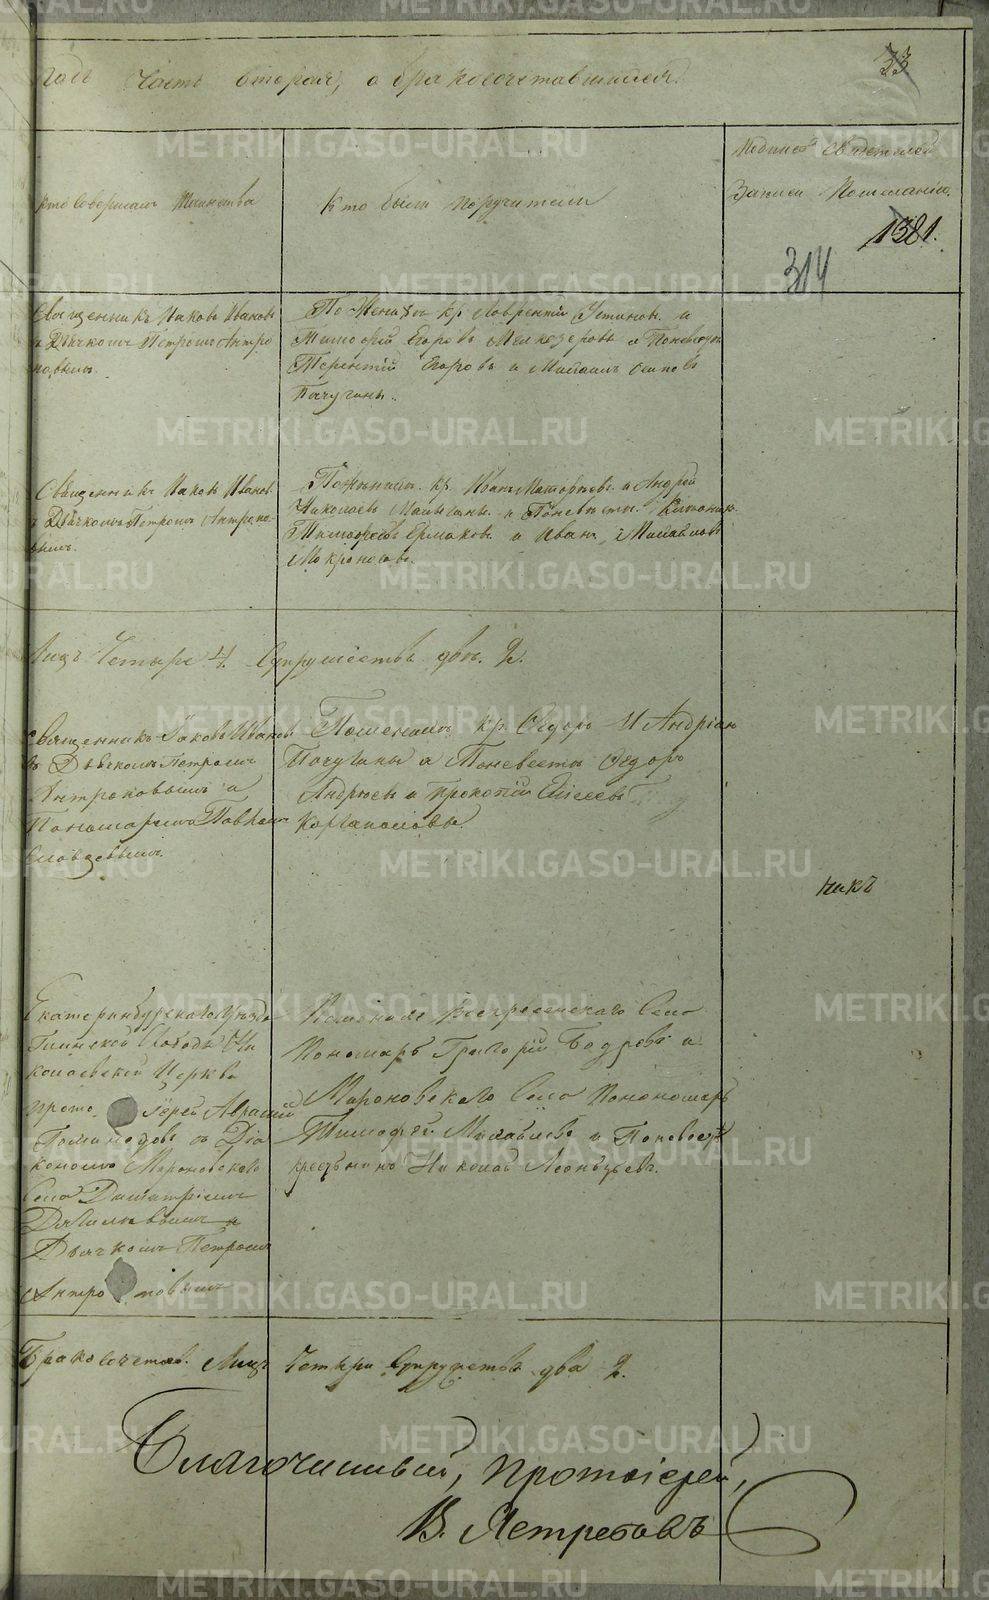 33
годъ Часть вторая, о бракосочетавшихся.
кто совершалъ Таинство
Кто были поручители
Подписъ Свидѣтелей
Записи По желанію.
1381.
314
Священникъ Іаковъ Ивановъ
и Дьячкомъ Петромъ Антро
повымъ.
По женихѣ кр. Лаврентій Устиновъ и
Тимофей Егоровъ Мелкозеровъ и По невѣстѣ
Терентій Егоровъ и Михаилъ Осиповъ
Пичугины.
Священникъ Іаковъ Иванов
ъ Дьячкомъ Петромъ Антропо-
вымъ.
По женихѣ кр. Иванъ и Андрей
Николаевъ и По невѣстѣ
Тимофеевъ Ермаковъ и Иванъ Михайловъ
Мокроносовъ.
Лицъ Четыре 4. Супружествъ два. 2.
Священникъ Іаковъ Ивановъ
съ Дьячкомъ Петромъ
Антроповымъ и
Пономаремъ Павломъ
Словцовымъ.
По женихѣ кр. Ѳедоръ и Андріан
Пичугины и По невѣстѣ Ѳедоръ
Андреевъ и Прокопій Елисеевъ
Коргаполовы
накъ
Екатеринбургскаго уѣзда
Глинской Слободы Ни
колаевской Церкви
прото іерей Аврамій
съ Діа
кономъ Мироновскаго
Села Димитріемъ
и
Дьячкомъ Петромъ
Антро повымъ
По женихѣ Воскресенскаго Села
Пономарь Григорій и
Мироновскаго Села Пономарь
Тимофей Михайловъ и По невѣстѣ
крестьянинъ Николай Леонтьевъ.
Бракосочетав. Лицъ Четыре Супружествъ два 2.
Благочинный, протоіерей,
В. Ястребовъ
METRIKI.GASO-URAL.RU